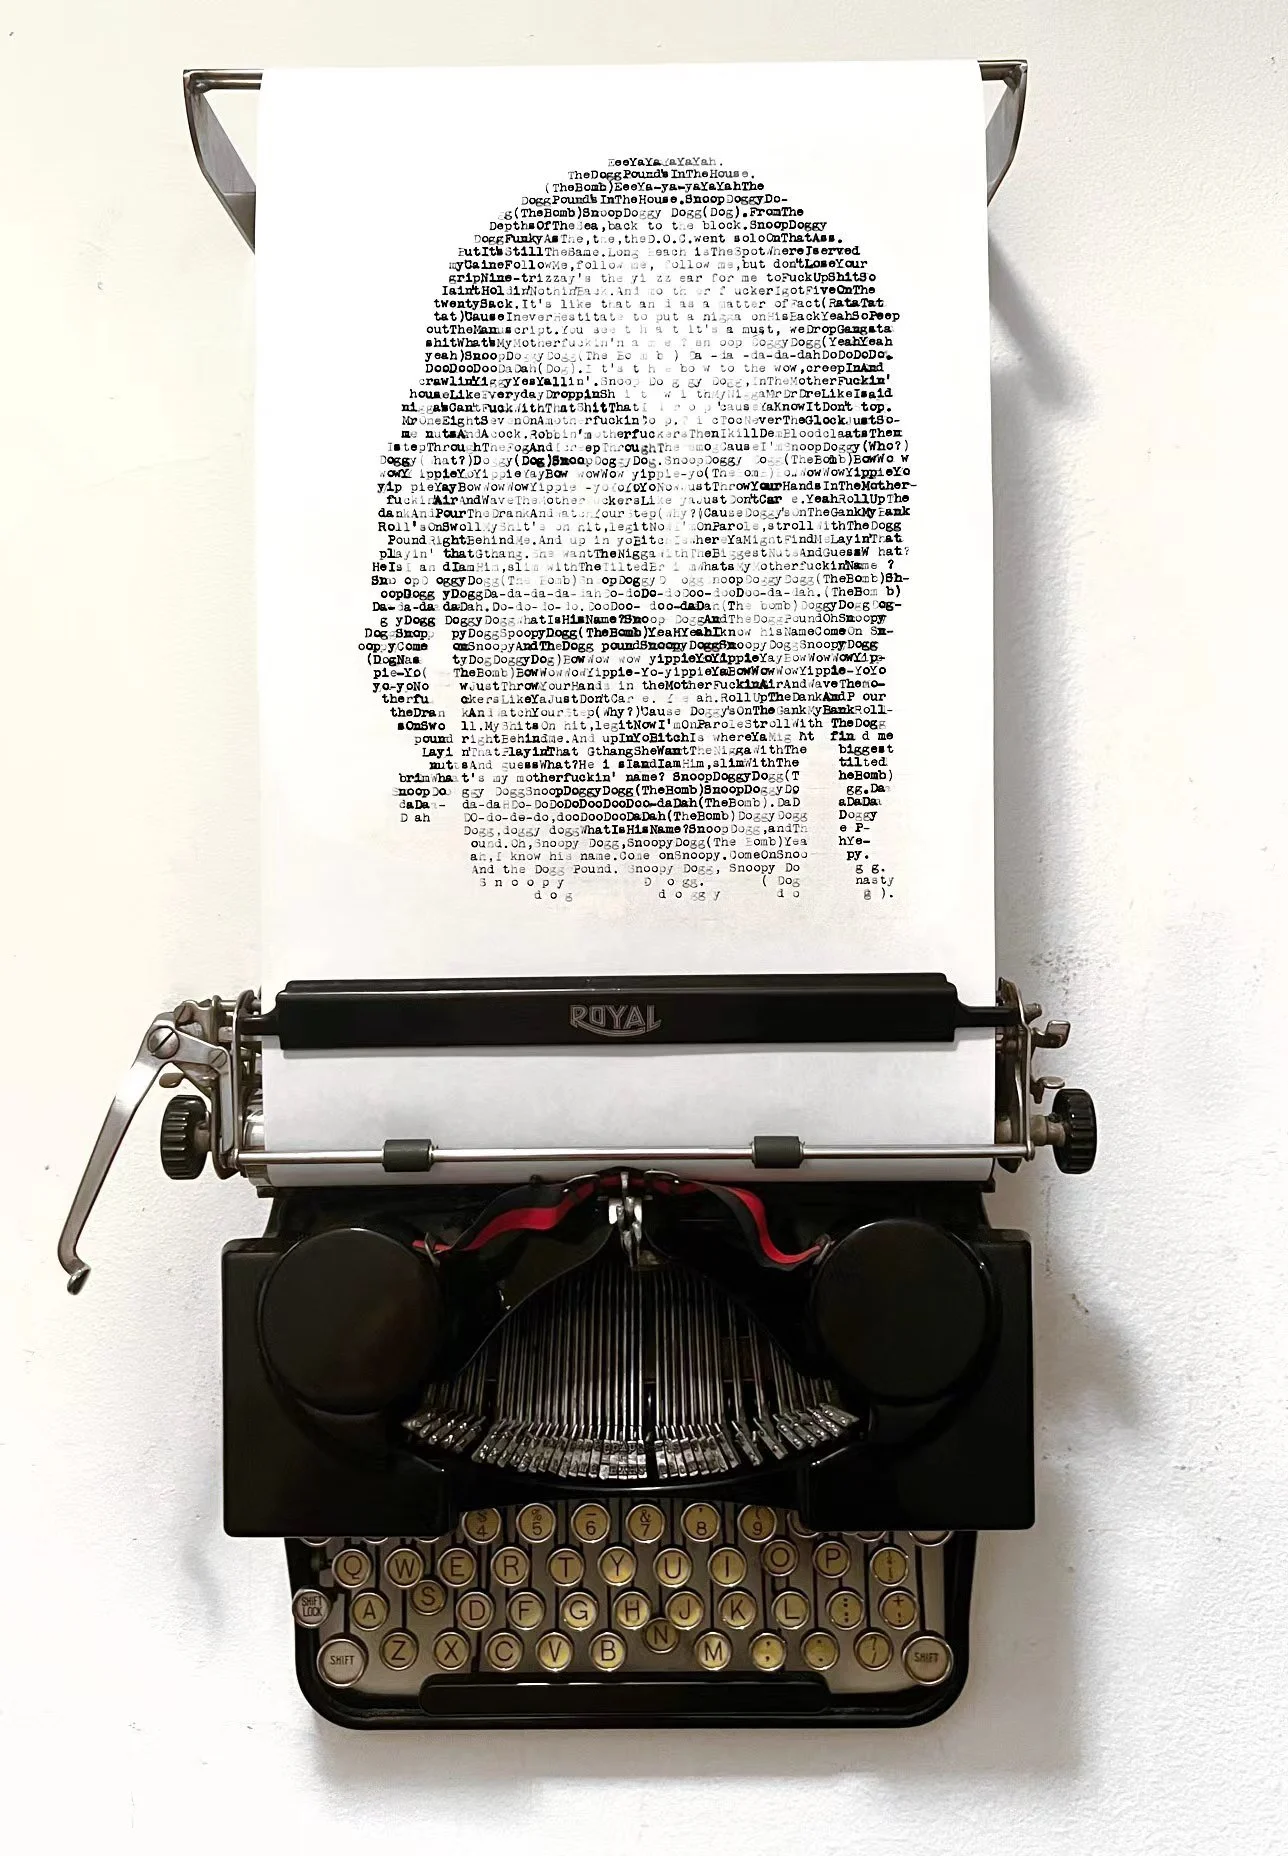 EeeYaYaYaYaYah.
TheDoggPound'sInTheHouse.
(TheBomb)EeeYa-ya-yaYaYahThe
DoggPound'sInTheHouse.SnoopDoggyDo-
gg(TheBomb)SnoopDoggy Dogg(Dog).FromThe
DepthsOfTheSea,back to the block.SnoopDoggy
DoggFunkyAsThe,the,theD.O.C.went soloOnThatAss.
ButIt'sStillTheSame.Long Beach isTheSpotWhereIserved
myCaineFollowMe,follow me, follow me,but don'tLoseYour
gripNine-trizzay's the yi zz ear for me toFuckUpShitSo
Iain'tHoldinNothinBack.And mo th er f uckerIgotFiveOnThe
twentySack.It's like that an d as a matter ofFact(RataTat
tat)CauseIneverHestitate to put a nigga onHisBackYeahSoPeep
outTheManuscript.You see t h a t it's a must, weDropGangsta
shitWhat'sMyMotherfuckin'n a m e ? Sn oop DoggyDogg(YeahYeah
yeah)SnoopDoggyDogg(The Bo m b ) Da -da -da-da-dahDoDoDoDo.
DooDooDooDaDah(Dog).It's t h e bo w to the wow,creepInAnd
crawlinYiggyYesYallin'.Snoop Do g gy Dogg,InTheMotherFuckin'
houseLikeEverydayDroppinSh i t w i thMyNiggaMrDrDreLikeIsaid
niggasCan'tFuckWithThatShitThat I d r o p 'causeYaKnowItDon't top.
MrOneEightSevenOnAmotherfuckin'Co p.T i cTocNeverTheGlockJustSo-
me nutsAndAcock.Robbin'motherfuckersThenIkillDemBloodclaatsThen
IstepThroughTheFogAndIcreepThroughThe smogCauseI'mSnoopDoggy(Who?)
Doggy( hat?)Doggy(Dog)SnoopDoggyDog.SnoopDoggy Dogg(TheBomb)BowWo w
wowY ippieYoYippieYayBow wowWow yippie-yo(The omb)BowWowWowYippieYo
yip pieYayBowWowWowYippie -yoYoYoNowJustThrowYourHandsInTheMother-
fuckinAirAndWaveTheMother uckersLike yaJustDon'tCar e.YeahRollUpThe
dankAndPourTheDrankAndWatchYourStep(Why?)CauseDoggy'sOnTheGankMyBank
Roll'sOnSwollMyShit's on hit,legitNowI'mOnParole,strollWithTheDogg
PoundRightBehindMe.And up in yoBitchIswhereYaMightFindMeLayinThat
playin' thatGthang.She wantTheNiggaWithTheBiggestNutsAndGuessW hat?
HeIsI an dIamHim,slim withTheTiltedBrimWhatsMyMotherfuckinName ?
Sno opD oggyDogg(The Bomb)SnoopDoggyD ogg.SnoopDoggyDogg(TheBomb)Sh-
oopDogg yDoggDa-da-da-da-dahDo-doDo-doDoo-dooDoo-da-dah.(TheBom b)
Da-da-da-daDah.Do-do-do-do.DooDoo- doo-daDah(The bomb)DoggyDoggDog-
g yDogg DoggyDoggWhatIsHisName?Snoop DoggAndTheDoggPoundOhSnoopy
Dogg.Snoop pyDoggSpoopyDogg(TheBomb)YeaHYeahIknow hisNameComeOn Sn-
oopy.Come onSnoopyAndTheDogg poundSnoopyDoggSnoopyDogg
(DogNas tyDogDoggyDog)BowWow wow yippieYoYippieYayBowWowWowYip-
pie-Yo( TheBomb)BowWowWowYippie-Yo-yippieYaBowWowWowYippie-YoYo
yo-yoNo wJustThrowYourHands in theMotherFuckinAirAndWaveThemo-
therfu ckersLikeYaJustDon'tCar e. Y e ah.RollUpTheDankAndP our
theDran kAndWatchYourStep(Why?)Cause Doggy'sOnTheGankMyBankRoll-
sOnSwo ll.MyShitsOn hit,legitNowI'mOnParoleStrollWith TheDogg
pound rightBehindme.And upInYoBitchIs whereYaMig ht find me
Layi n'ThatPlayinThat GthangSheWantTheNiggaWithThe biggest
nutssAnd guessWhat?He i sIandIamHim,slimWithThe tilted
brimWha t's my motherfuckin' name? SnoopDoggyDogg(T heBomb)
SnoopDo ggy DoggSnoopDoggyDogg(TheBomb)SnoopDoggyDo gg.Da
daDa- da-daHDo-DoDoDoDooDooDoo-daDah(TheBomb).DaD aDaDa
D ah DO-do-de-do,dooDooDooDaDah(TheBomb)DoggyDogg Doggy
Dogg,doggy doggWhatIsHisName?SnoopDogg,andTh e P-
ound.Oh,Snoopy Dogg,SnoopyDogg(The Bomb)Yea hYe-
ah,I know his name.Come onSnoopy.ComeOnSnoo py.
And the Dogg Pound. Snoopy Dogg, Snoopy Do g g.
S n o o p y D o gg. ( Dog nasty
d o g d o gg y d o g ).
ROYAL
4 5 6 7 8 9
Q W E R T Y U I O P
SHIFT LOCK A S D F G H J K L
SHIFT Z X C V B N M SHIFT